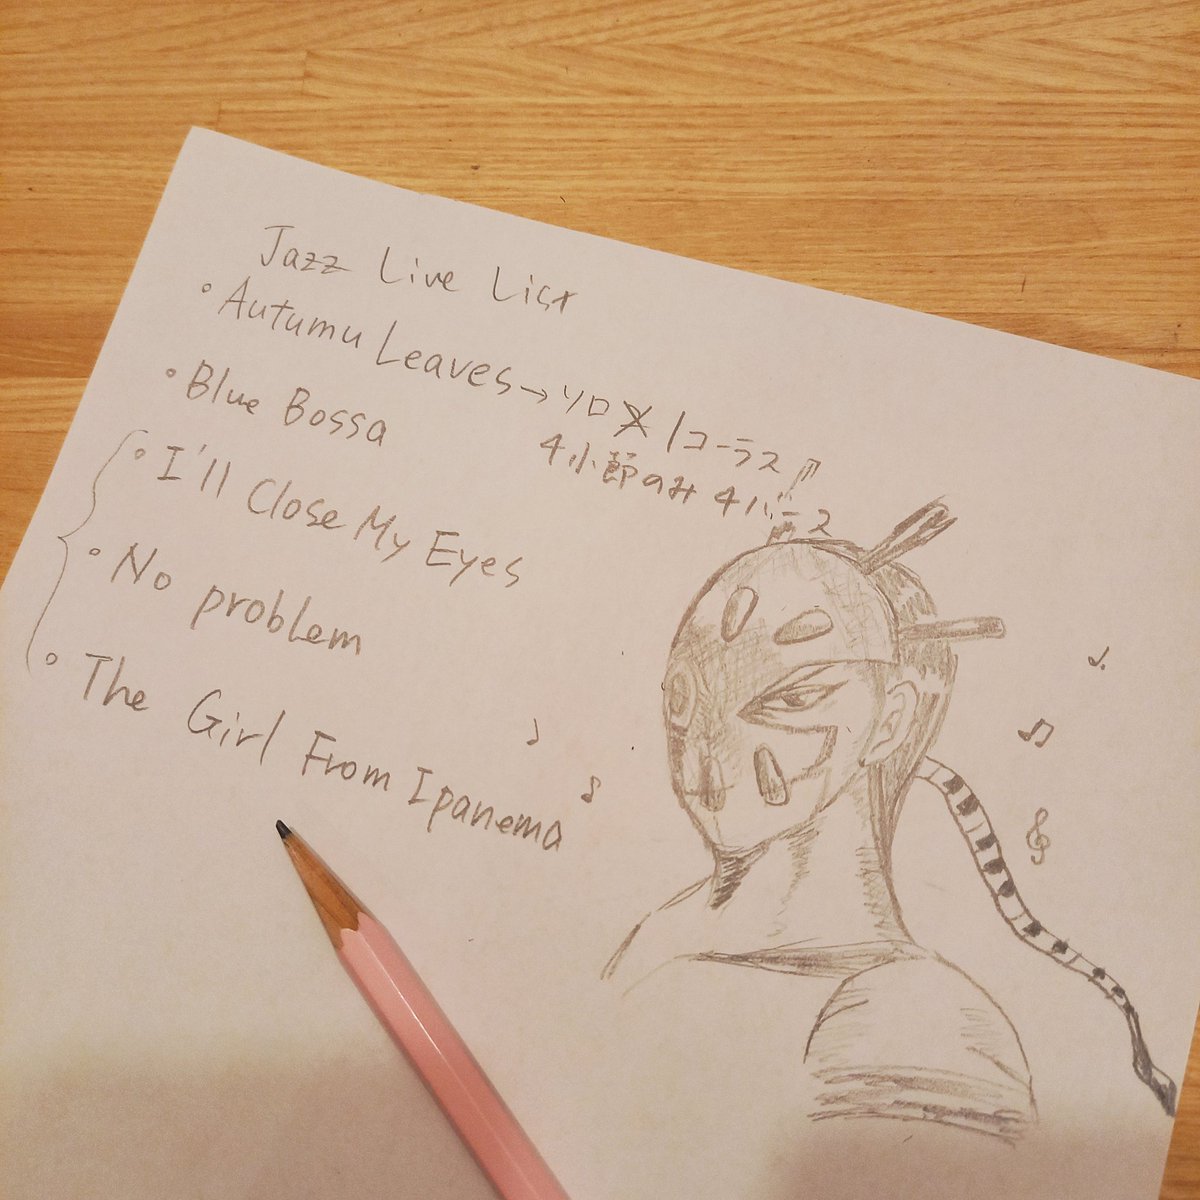 Jazz Live List
・Autumu Leaves→ソロ 1コーラス
4小節のみ 4バース
・Blue Bossa
・I'll Close My Eyes
・No problem
・The Girl From Ipanema